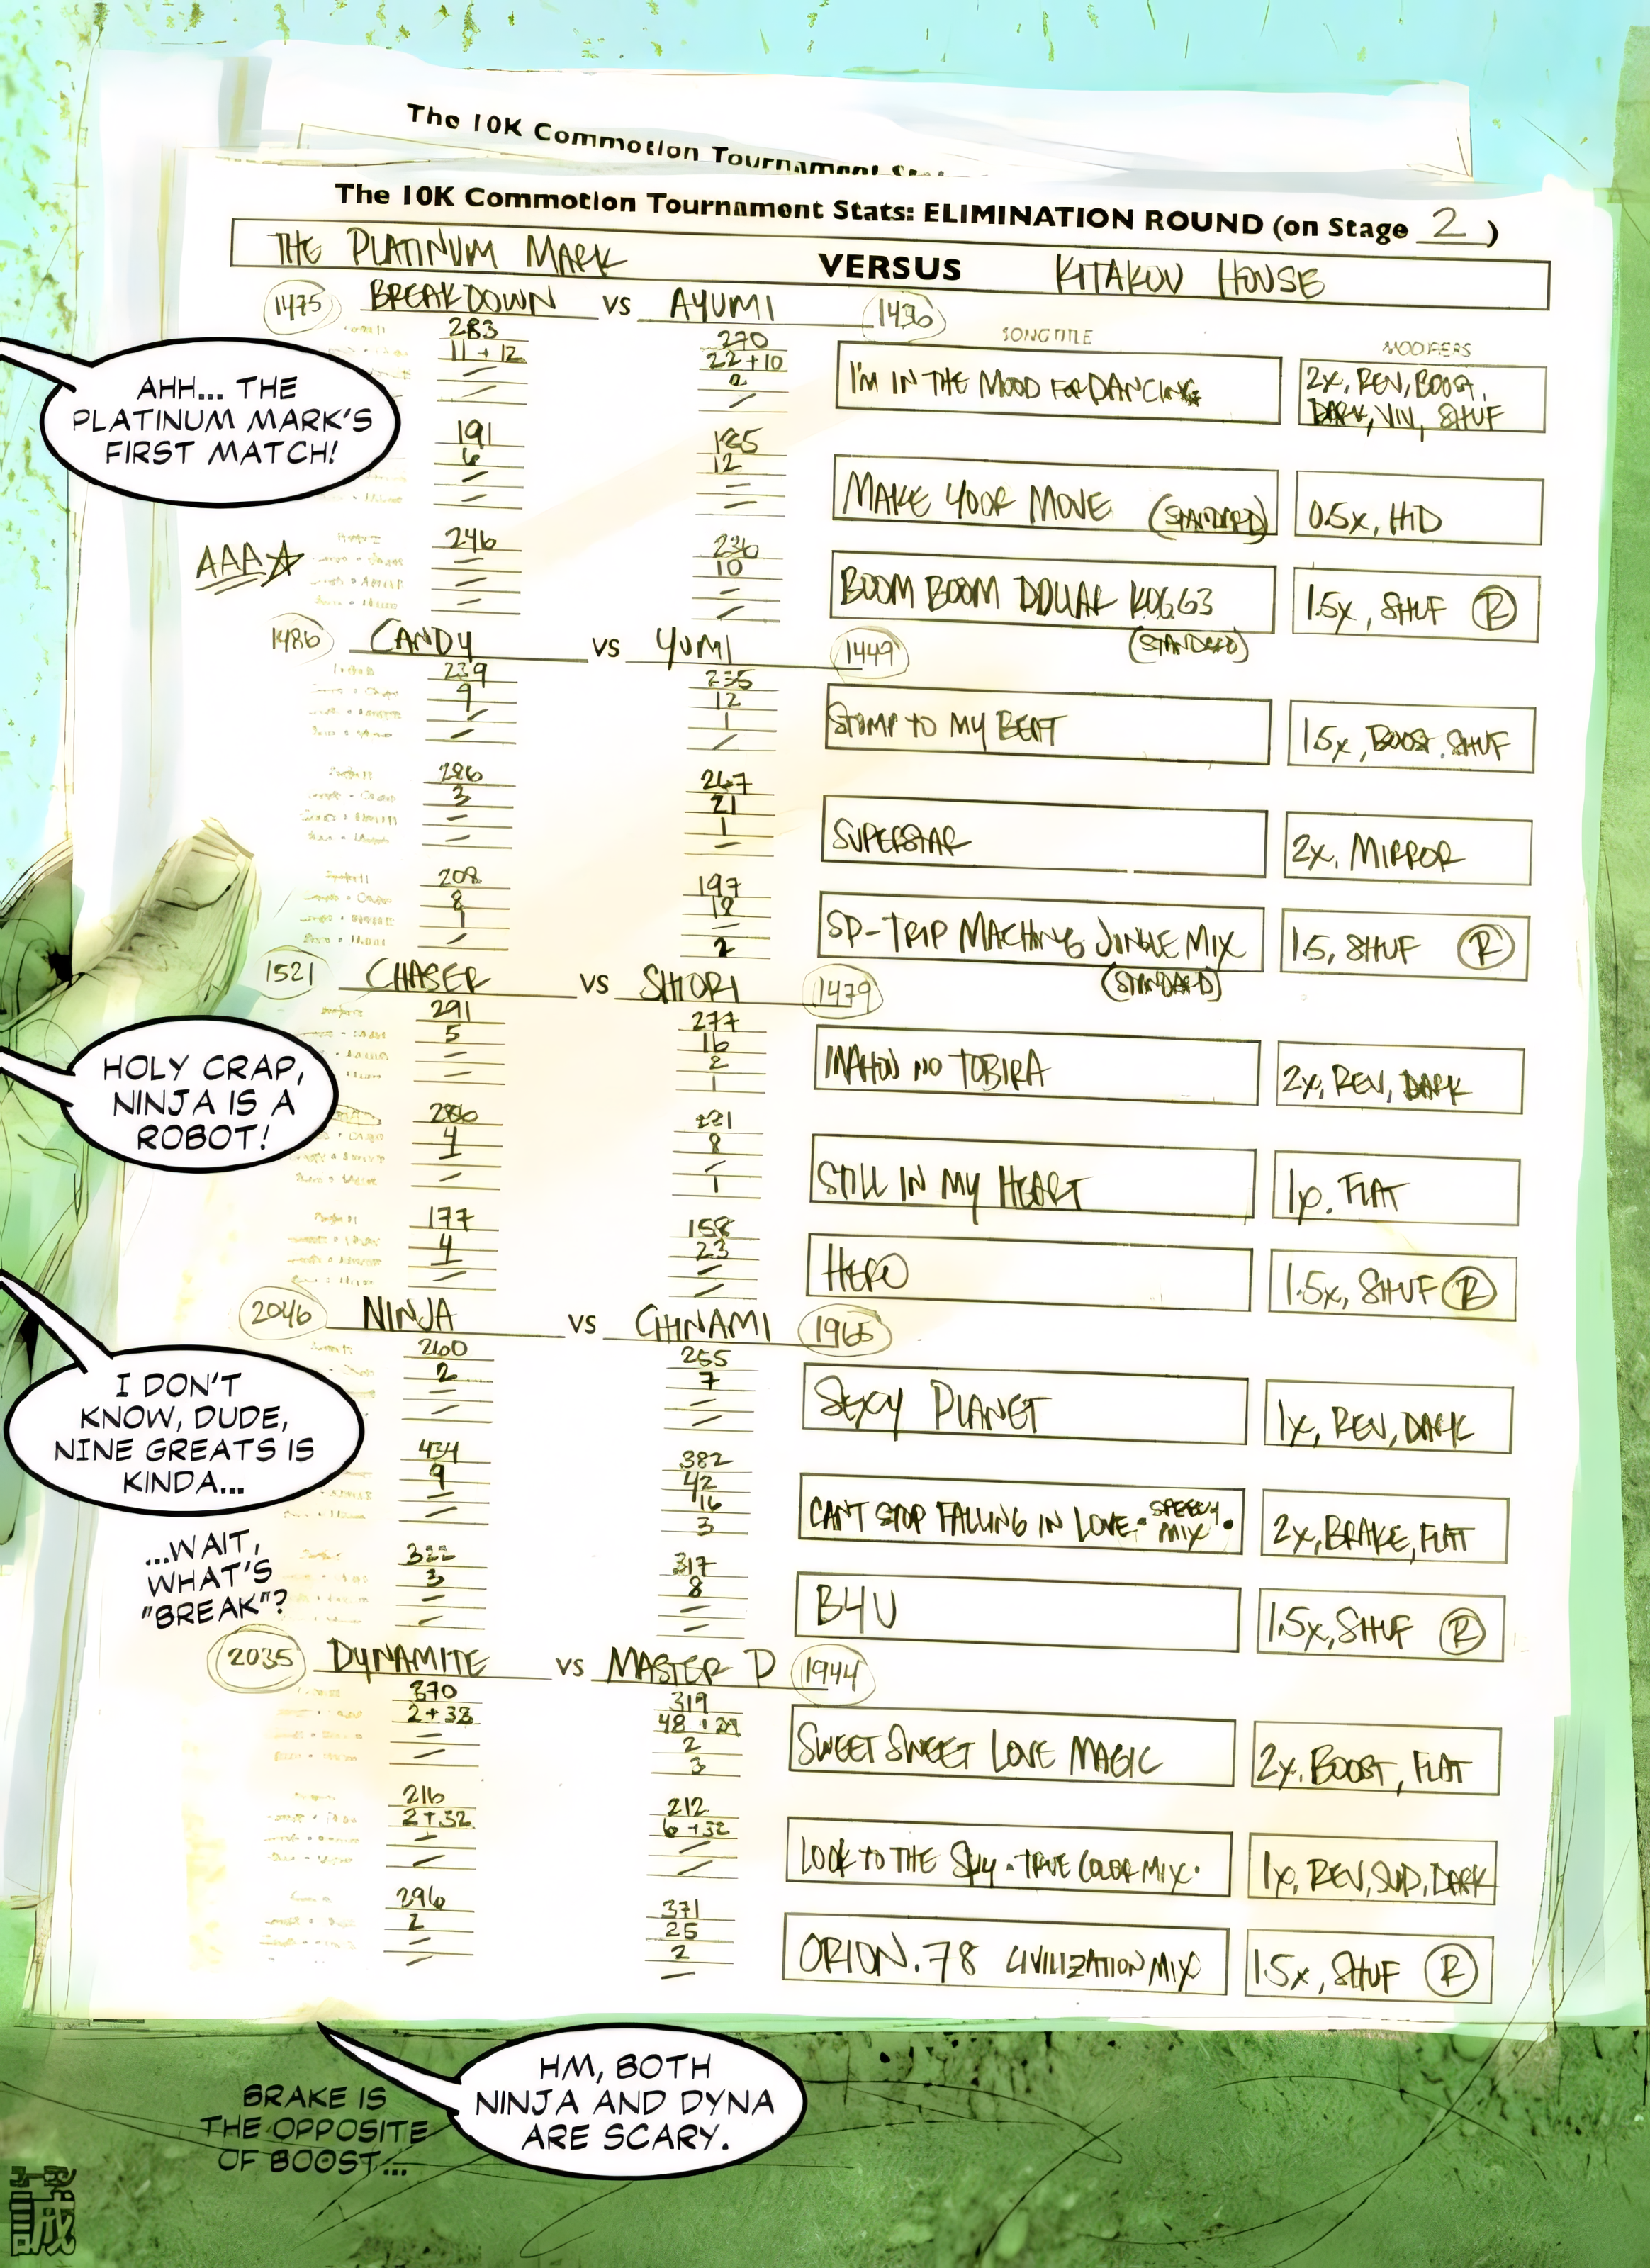 The 10K Commotion Tournament
The 10K Commotion Tournament Stats: ELIMINATION ROUND (on Stage 2)
THE PLATINUM MARK VERSUS KITAKOU HOUSE
1475 BREAKDOWN VS AYUMI 1436
SONG TITLE MODIFIERS
283 270
11 + 12 22 + 10
2
I'M IN THE MOOD FOR DANCING
2X, REV, BOOST,
DARK, VIV, SHUF
AHH... THE
PLATINUM MARK'S
FIRST MATCH!
191 185
6 12
MAKE YOUR MOVE (STANDARD) 0.5X, HID
AAA☆
246 236
10
BOOM BOOM DOLLAR KOG G3 1.5X, SHUF Ⓡ
(STANDARD)
1486 CANDY VS YUMI 1449
239 235
9 12
1
STOMP TO MY BEAT 1.5X, BOOST, SHUF
286 267
3 21
1
SUPERSTAR 2X, MIRROR
208 197
8 18
1
2
SP-TRIP MACHINE JINGLE MIX 1.5, SHUF Ⓡ
(STANDARD)
1521 CHASER VS SHIORI 1479
291 277
5 16
2
1
MAHOU NO TOBIRA 2X, REV, DARK
HOLY CRAP,
NINJA IS A
ROBOT!
286 281
4 8
1
STILL IN MY HEART FLAT
177 158
4 23
HERO 1.5X, SHUF Ⓡ
2046 NINJA VS CHINAMI 1965
260 255
2 7
SEXY PLANET 1X, REV, DARK
I DON'T
KNOW, DUDE,
NINE GREATS IS
KINDA...
434 382
9 42
16
3
CANT STOP FALLING IN LOVE · SPEEDY MIX · 2X, BRAKE, FLAT
...WAIT,
WHAT'S
"BREAK"?
322 317
3 8
B4U 1.5X, SHUF Ⓡ
2035 DYNAMITE VS MASTER D 1944
370 319
2 + 33 48
2
3
SWEET SWEET LOVE MAGIC 2X, BOOST, FLAT
216 212
2 + 32 6 + 32
LOOK TO THE SKY · TRUE COLOR MIX · 1X, REV, SUD, DARK
296 371
2 25
2
ORION.78 CIVILIZATION MIX 1.5X, SHUF Ⓡ
HM, BOTH
NINJA AND DYNA
ARE SCARY.
BRAKE IS
THE OPPOSITE
OF BOOST...
誠